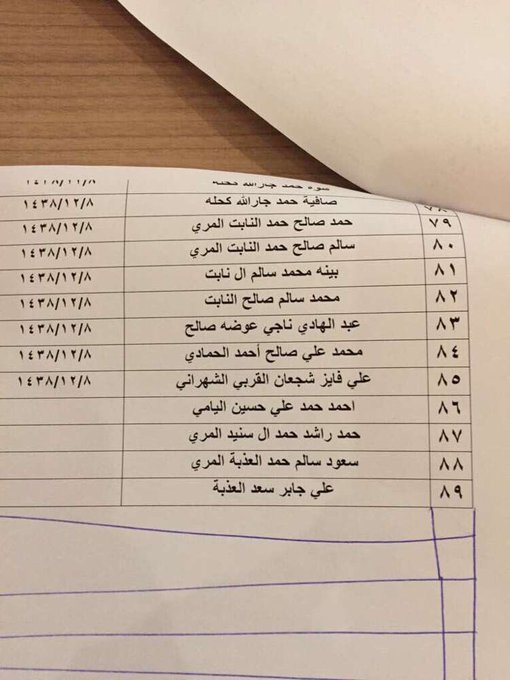 حمد جارالله
٧٨ صافية حمد جارالله كحله ١٤٣٨/١٢/٨
٧٩ حمد صالح حمد النابت المري ١٤٣٨/١٢/٨
٨٠ سالم صالح حمد النابت المري ١٤٣٨/١٢/٨
٨١ بينه محمد سالم ال نابت ١٤٣٨/١٢/٨
٨٢ محمد سالم صالح النابت ١٤٣٨/١٢/٨
٨٣ عبد الهادي ناجي عوضه صالح ١٤٣٨/١٢/٨
٨٤ محمد علي صالح أحمد الحمادي ١٤٣٨/١٢/٨
٨٥ علي فايز شجعان القربي الشهراني ١٤٣٨/١٢/٨
٨٦ احمد حمد علي حسين اليامي
٨٧ حمد راشد حمد ال سنيد المري
٨٨ سعود سالم حمد العذبة المري
٨٩ علي جابر سعد العذبة